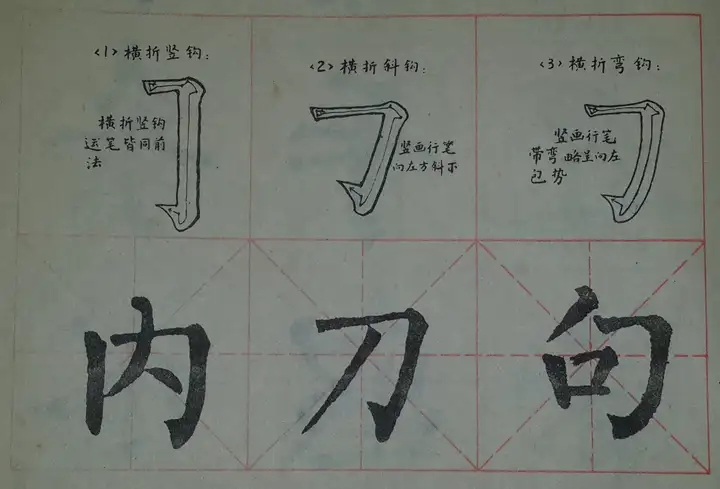 (1)横折竖钩:
横折竖钩
运笔皆同前
法
(2)横折斜钩:
竖画行笔
向左方斜下
(3)横折弯钩:
竖画行笔
带弯略呈向左
包势
内
刀
句